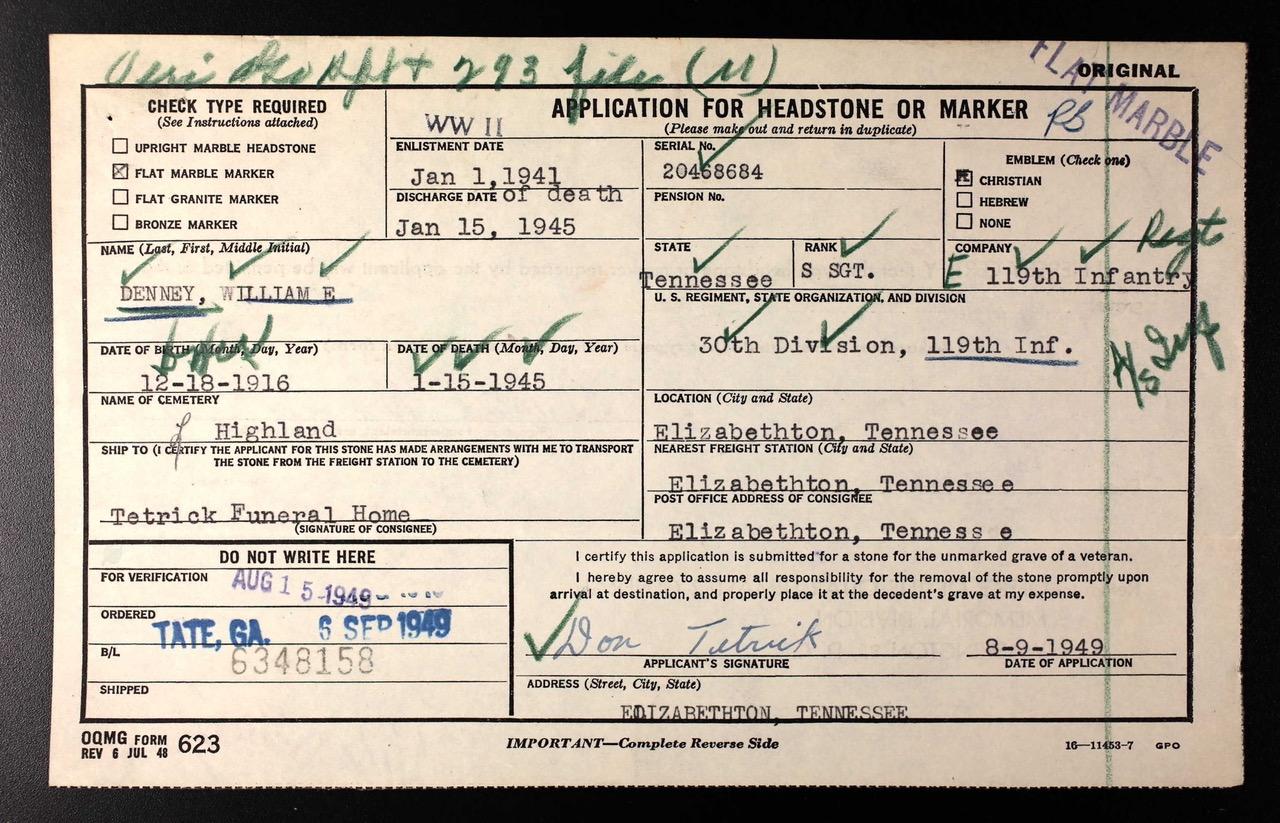 293 file (M)
ORIGINAL
FLAT MARBLE
CHECK TYPE REQUIRED
(See Instructions attached)
☐ UPRIGHT MARBLE HEADSTONE
☒ FLAT MARBLE MARKER
☐ FLAT GRANITE MARKER
☐ BRONZE MARKER
WW II
APPLICATION FOR HEADSTONE OR MARKER
(Please make out and return in duplicate)
ENLISTMENT DATE
Jan 1,1941
DISCHARGE DATE of death
Jan 15, 1945
SERIAL No.
20468684
PENSION No.
EMBLEM (Check one)
☒ CHRISTIAN
☐ HEBREW
☐ NONE
NAME (Last, First, Middle Initial)
DENNEY, WILLIAM E
STATE
Tennessee
RANK
S SGT.
COMPANY
E 119th Infantry
Regt
U. S. REGIMENT, STATE ORGANIZATION, AND DIVISION
30th Division, 119th Inf.
DATE OF BIRTH (Month, Day, Year)
12-18-1916
DATE OF DEATH (Month, Day, Year)
1-15-1945
NAME OF CEMETERY
Highland
LOCATION (City and State)
Elizabethton, Tennessee
SHIP TO (I CERTIFY THE APPLICANT FOR THIS STONE HAS MADE ARRANGEMENTS WITH ME TO TRANSPORT
THE STONE FROM THE FREIGHT STATION TO THE CEMETERY)
Tetrick Funeral Home
(SIGNATURE OF CONSIGNEE)
NEAREST FREIGHT STATION (City and State)
Elizabethton, Tennessee
POST OFFICE ADDRESS OF CONSIGNEE
Elizabethton, Tenness e
DO NOT WRITE HERE
FOR VERIFICATION
AUG 15 1949
ORDERED
TATE, GA. 6 SEP 1949
B/L
6348158
SHIPPED
I certify this application is submitted for a stone for the unmarked grave of a veteran.
I hereby agree to assume all responsibility for the removal of the stone promptly upon
arrival at destination, and properly place it at the decedent's grave at my expense.
Don Tetrick
8-9-1949
APPLICANT'S SIGNATURE
DATE OF APPLICATION
ADDRESS (Street, City, State)
ELIZABETHTON, TENNESSEE
OQMG FORM 623
REV 6 JUL 48
IMPORTANT—Complete Reverse Side
16—11453-7 GPO